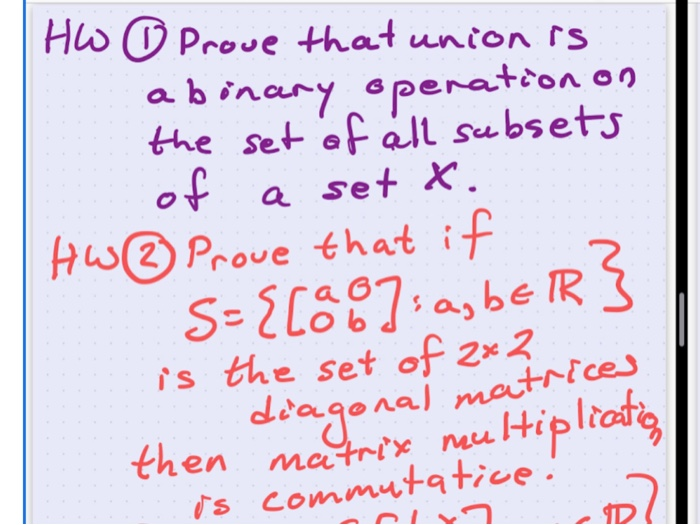 HW ① Prove that union is
a binary operation on
the set of all subsets
of a set X.
HW ② Prove that if
S={[a 0
0 b]: a, b ∈ ℝ}
is the set of 2×2
diagonal matrices
then matrix multiplication
is commutative.